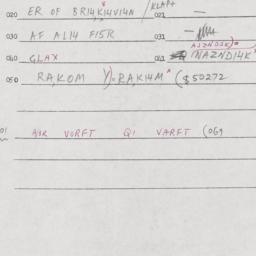 020 ER OF BR14,K14V14N /KLAP+ 021 —
030 AF AL14 F15R 031 —
040 GLAX 041 NAZND14K
050 RA,KOM Y)=RA,K14M ^ ($50272
01 VORFT Q1 VARFT (069